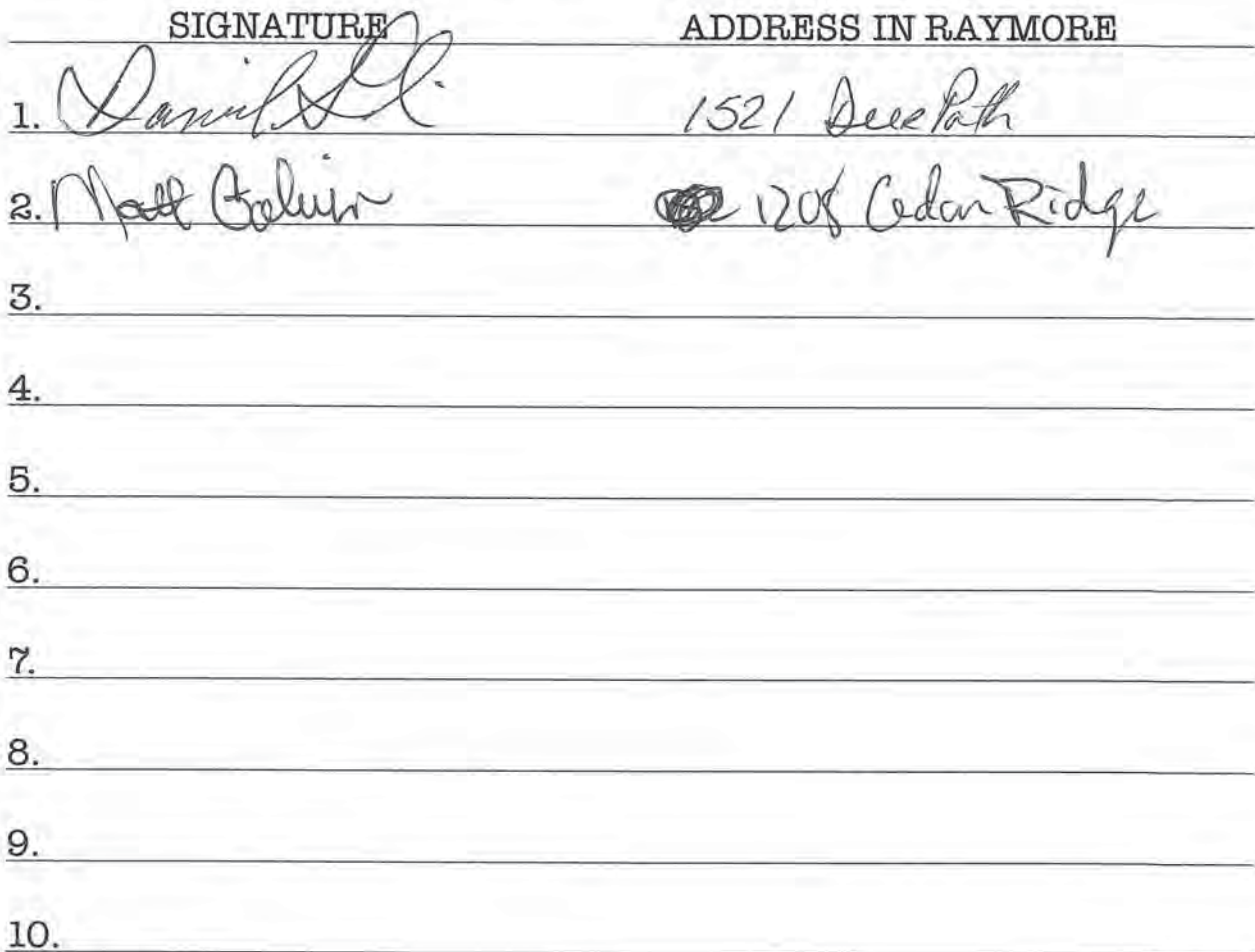 SIGNATURE ADDRESS IN RAYMORE
1. Daniel 1521 Deer Path
2. Matt 1208 Cedar Ridge
3.
4.
5.
6.
7.
8.
9.
10.